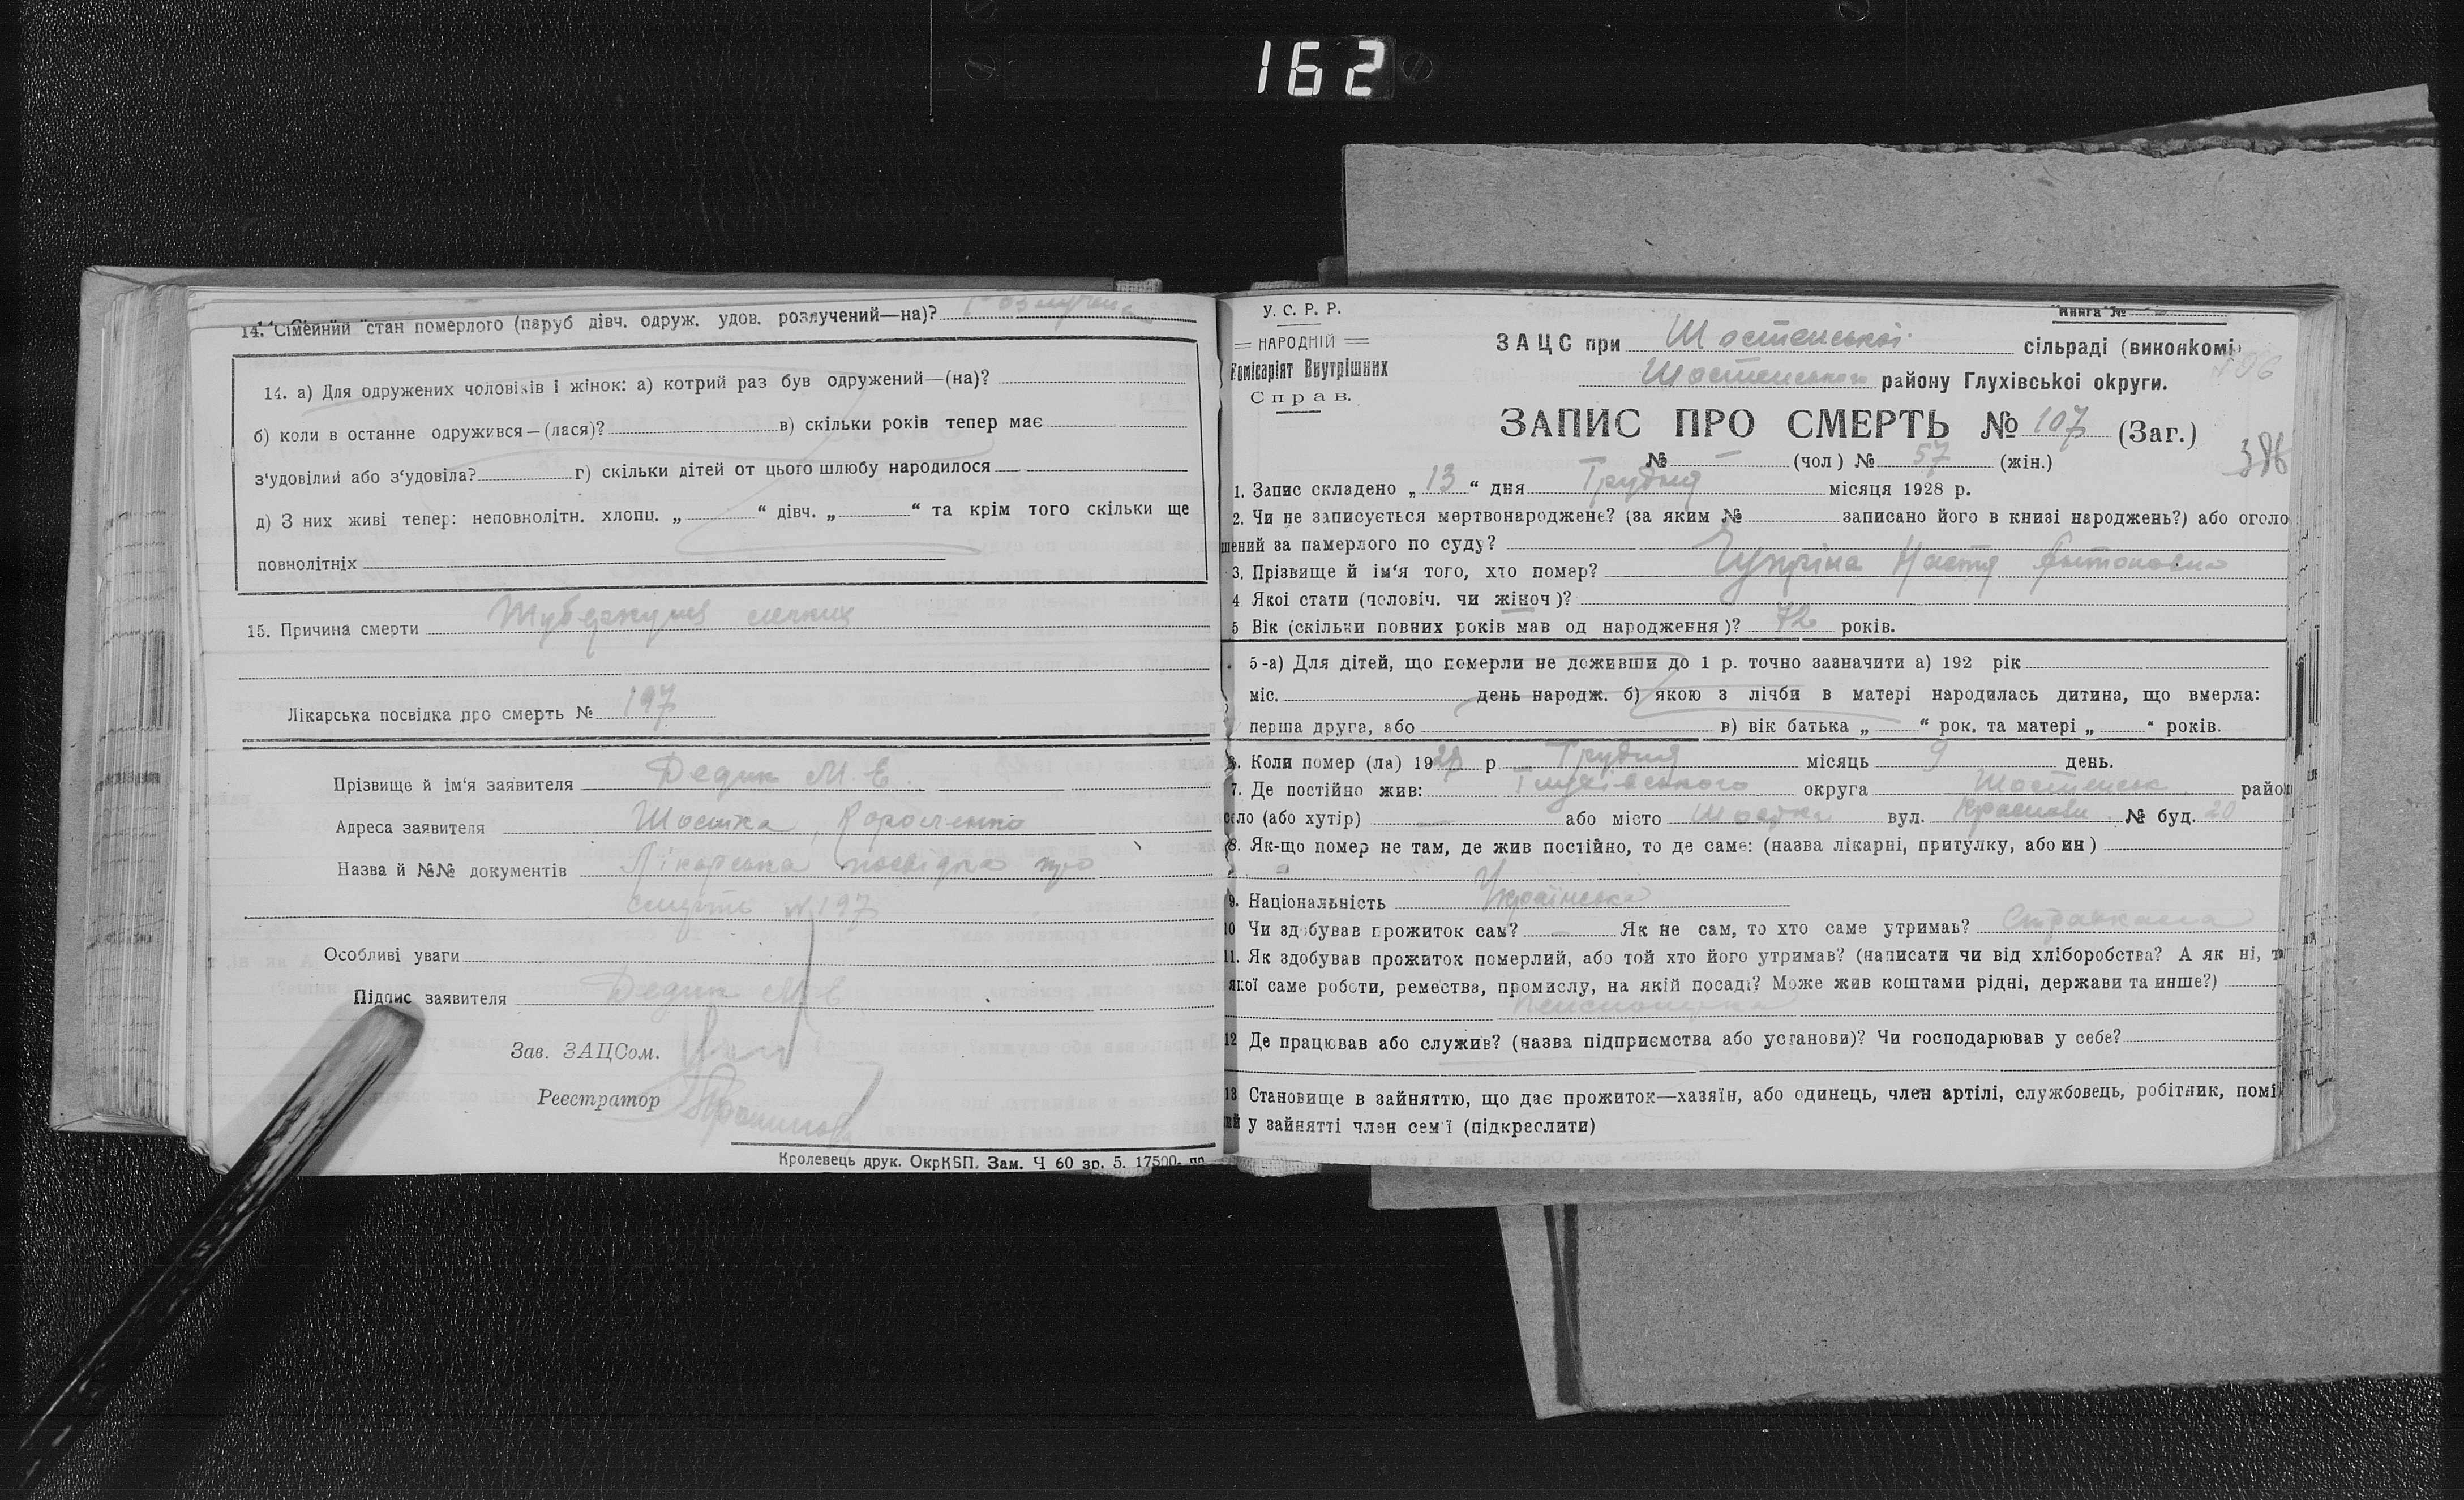 162
14. Сімейний стан померлого (паруб дівч. одруж. удов. розлучений—на)?
14. а) Для одружених чоловіків і жінок: а) котрий раз був одружений—(на)?
б) коли в останне одружився—(лася)? в) скільки років тепер має
з‘удовілий або з‘удовіла? г) скільки дітей от цього шлюбу народилося
д) З них живі тепер: неповнолітн. хлопц. „ “ дівч. „ “ та крім того скільки ще
повнолітніх
15. Причина смерти Туберкульоз легких
Лікарська посвідка про смерть № 197
Прізвище й ім‘я заявителя Дедик М. Е.
Адреса заявителя Шостка,
Назва й №№ документів Лікарська посвідка про
смерть № 197
Особливі уваги
Підпис заявителя Дедик М Е
Зав. ЗАЦСом.
Реєстратор
Кролевець друк. ОкрКБП. Зам. Ч 60 зр. 5. 17500.
У. С. Р. Р.
НАРОДНІЙ
Комісаріят Внутрішних
Справ.
Книга №
ЗАЦС при Шостенської сільраді (виконкомі)
Шостенського району Глухівської округи.
ЗАПИС ПРО СМЕРТЬ № 107 (Заг.)
386
№ — (чол) № 57 (жін.)
1. Запис складено „ 13 “ дня Грудня місяця 1928 р.
2. Чи не записується мертвонароджене? (за яким № записано його в книзі народжень?) або оголо
шений за памерлого по суду?
3. Прізвище й ім‘я того, хто помер? Настя Антоновна
4 Якої стати (человіч. чи жіноч)?
5 Вік (скільки повних років мав од народження)? 72 років.
5-а) Для дітей, що померли не доживши до 1 р. точно зазначити а) 192 рік
міс. день народж. б) якою з лічби в матері народилась дитина, що вмерла:
перша друга, або в) вік батька „ “ рок. та матері „ “ років.
6. Коли помер (ла) 1928 р Грудня місяць 9 день.
7. Де постійно жив: Глухівського округа Шостенськ район
село (або хутір) — або місто Шостка вул. № буд. 20
8. Як-що помер не там, де жив постійно, то де саме: (назва лікарні, притулку, або ин)
9. Національність Українська
10 Чи здобував прожиток сам? — Як не сам, то хто саме утримав? Страхкаса
11. Як здобував прожиток померлий, або той хто його утримав? (написати чи від хліборобства? А як ні, т
якої саме роботи, ремества, промислу, на якій посаді? Може жив коштами рідні, держави та инше?)
Пенсионерка
12 Де працював або служив? (назва підприємства або установи)? Чи господарював у себе?
13 Становище в зайняттю, що дає прожиток—хазяїн, або одинець, член артілі, службовець, робітник, помі
ий у зайнятті член сем'ї (підкреслити)